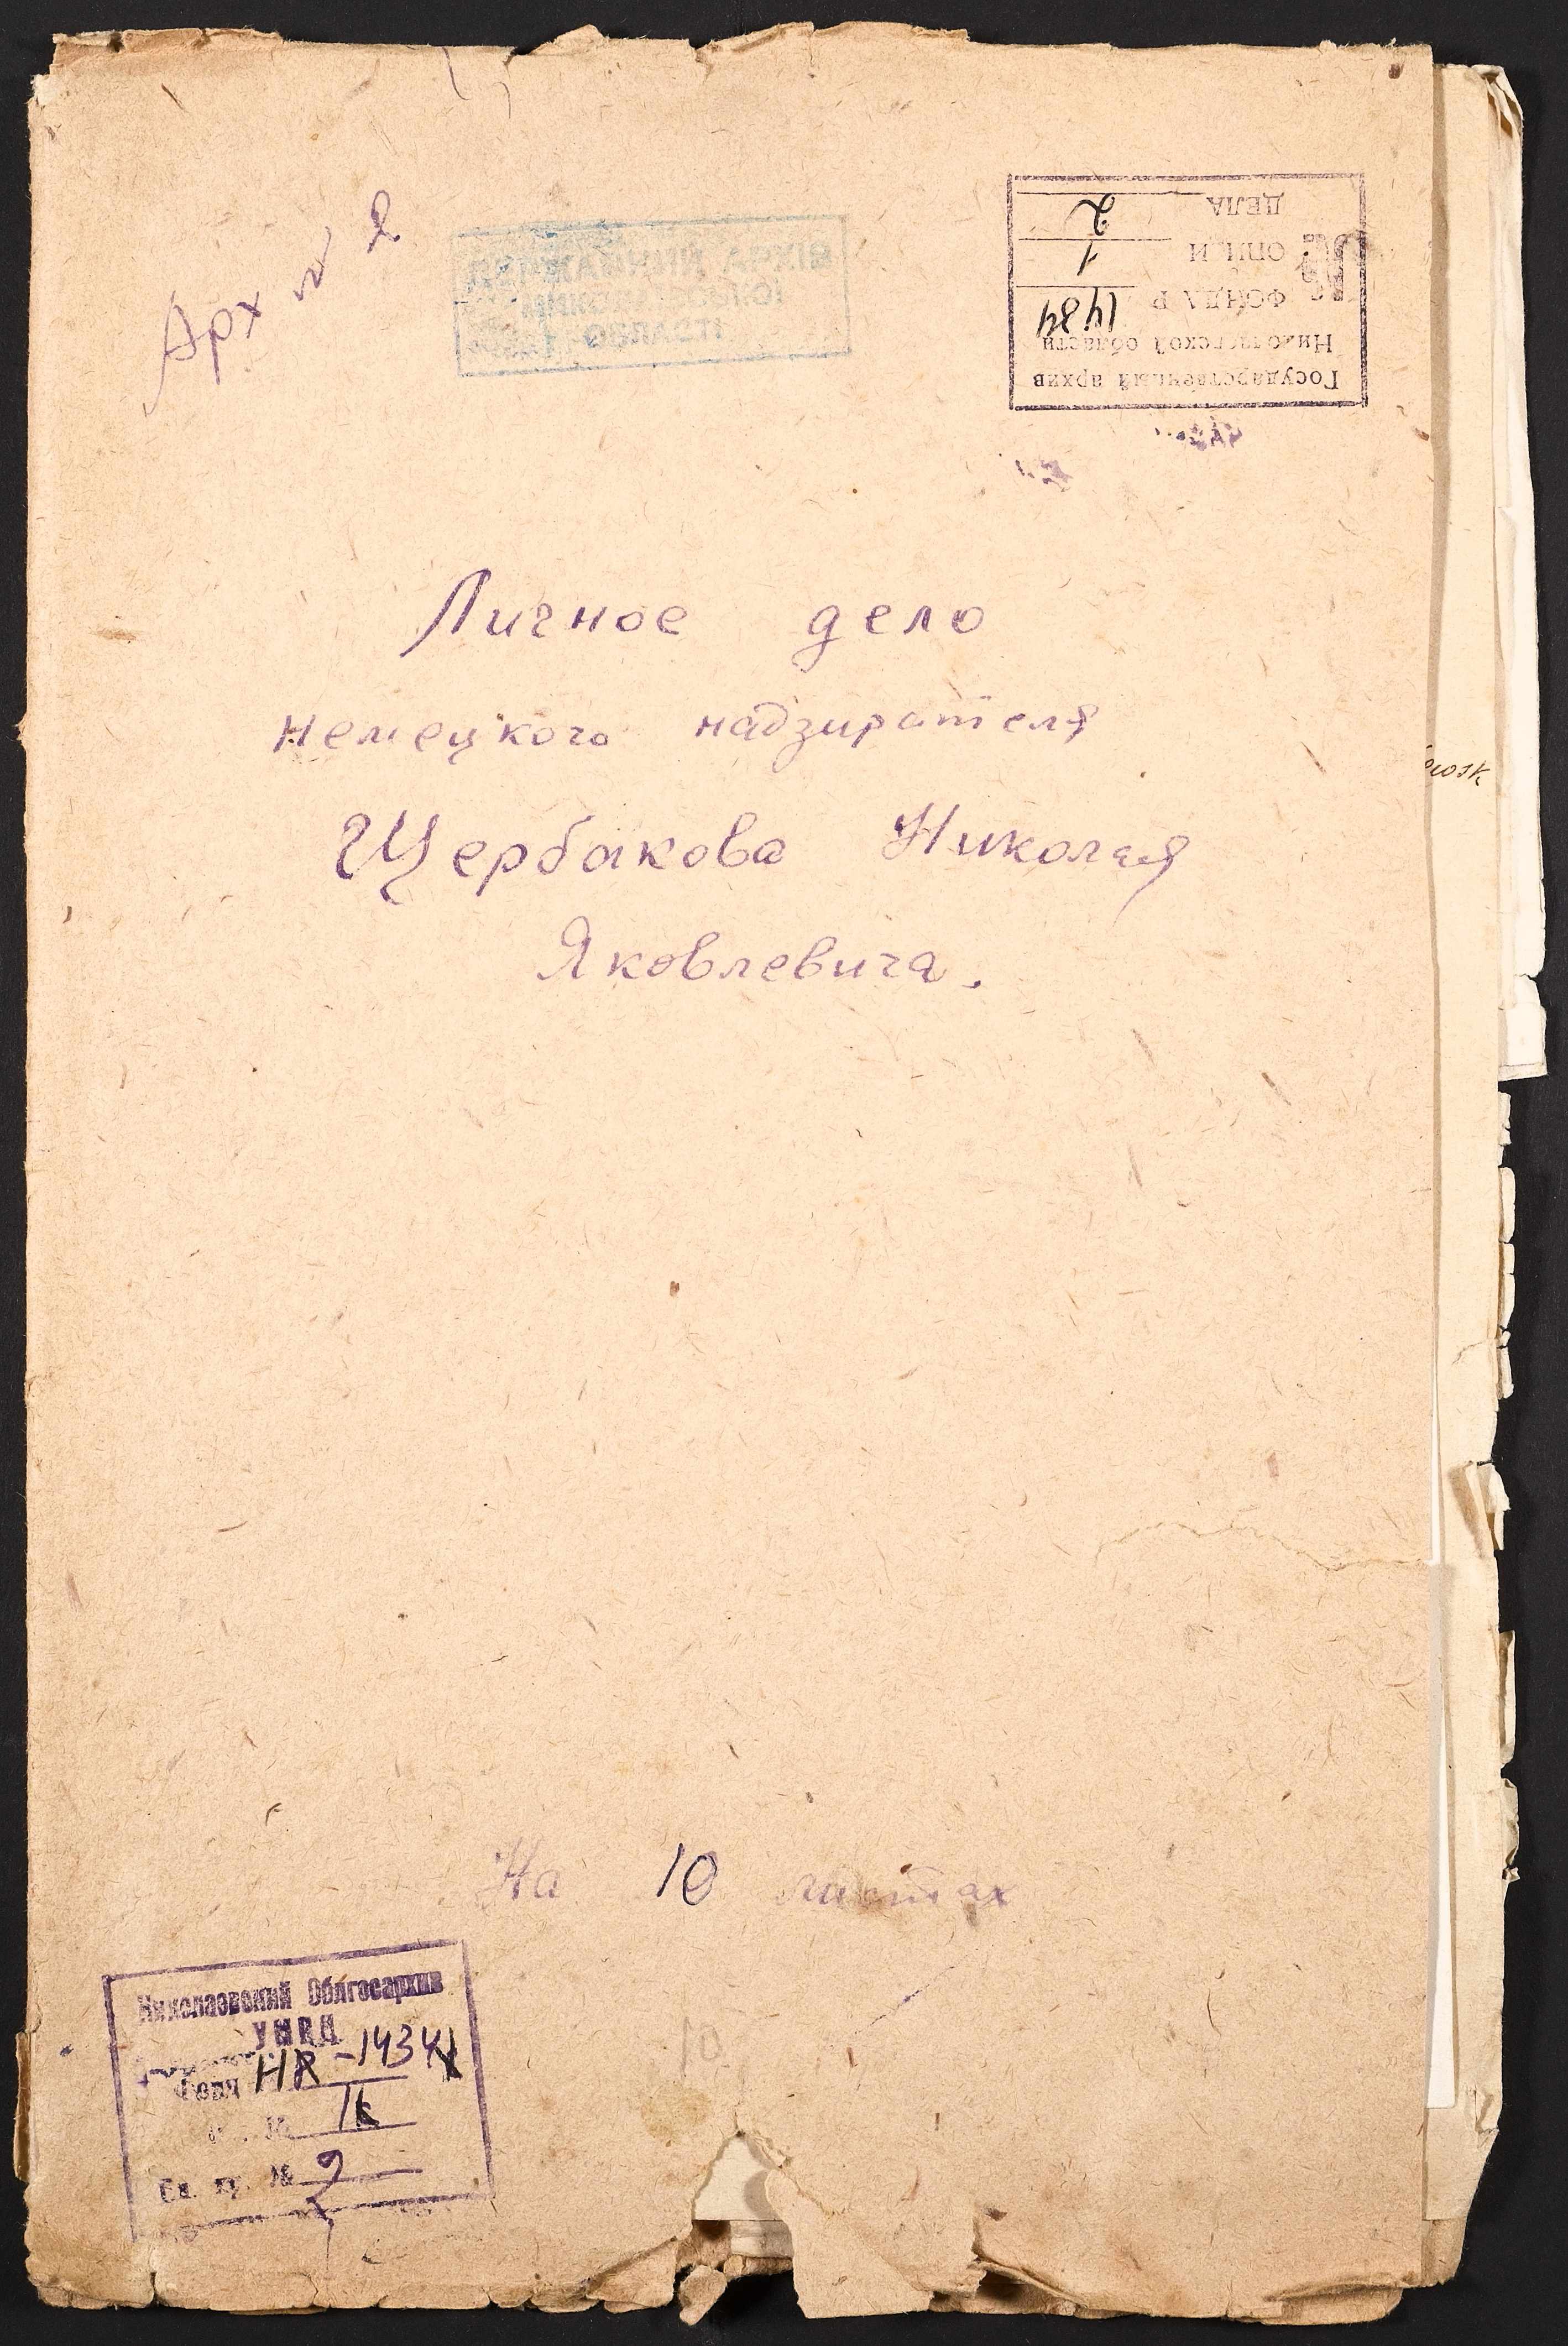 Арх № 2
ДЕРЖАВНИЙ АРХІВ
МИКОЛАЇВСЬКОЇ
ОБЛАСТІ
Государственный архив
Николаевской области
ФОНДА Р 1484
ОПИСИ 1
ДЕЛА 2
Личное дело
немецкого надзирателя
Щербакова Николая
Яковлевича.
На 10 листах
10
Николаевский Облгосархив
УМВД
Фонд НR-1434
Ед. хр. №